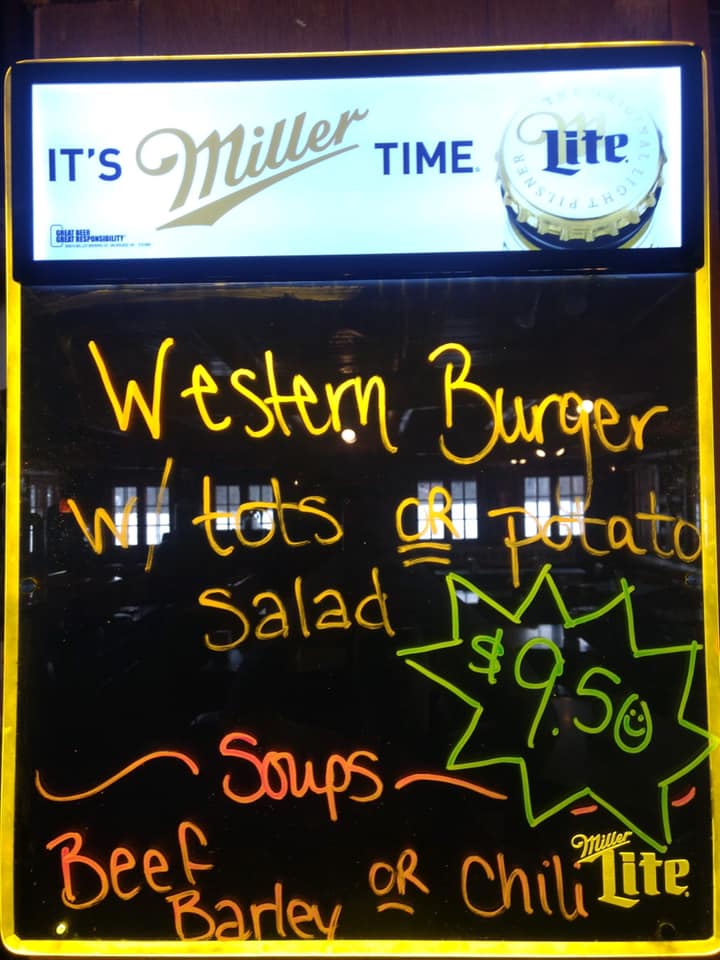 IT'S Miller TIME
THE ORIGINAL LIGHT PILSNER
Lite
GREAT BEER
GREAT RESPONSIBILITY
Western Burger
w/ tots OR potato
Salad
$9.50
Soups
Beef
Barley OR Chili
Miller
Lite